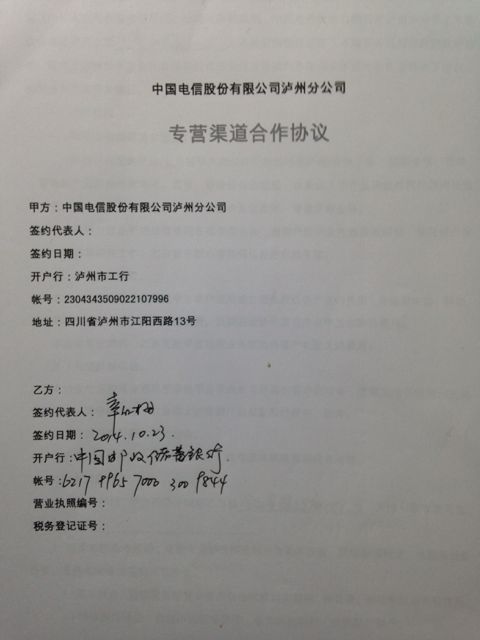 中国电信股份有限公司泸州分公司
专营渠道合作协议
甲方：中国电信股份有限公司泸州分公司
签约代表人：
签约日期：
开户行：泸州市工行
帐号：2304343509022107996
地址：四川省泸州市江阳西路13号
乙方：
签约代表人：
签约日期：2014.10.23.
开户行：中国邮政储蓄银行
帐号：6217 9965 7000 300 9844
营业执照编号：
税务登记证号：